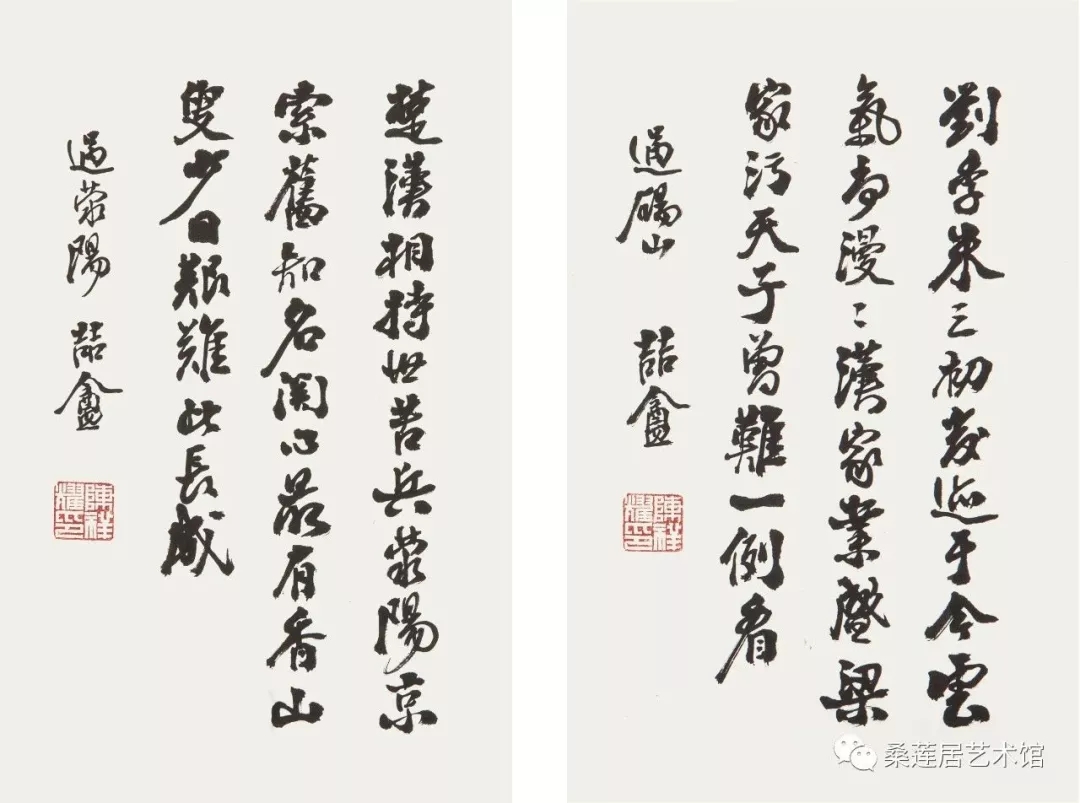 劉季朱三初發迹于今雲
氣尚漫〻漢家業暨梁
家污天子曾難一例看
過碭山 喆盦
陳祥耀印
楚漢相持世苦兵滎陽京
索舊知名關心最有香山
叟少日艱難此長成
過滎陽 喆盦
陳祥耀印
桑莲居艺术馆